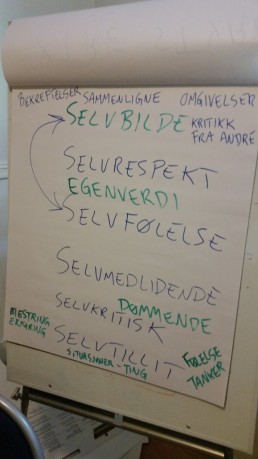 BEKREFTELSER SAMMENLIGNE OMGIVELSER
SELVBILDE KRITIKK
FRA ANDRE
SELVRESPEKT
EGENVERDI
SELVFØLELSE
SELVMEDLIDENDE
DØMMENDE
SELVKRITISK
MESTRING
ERFARING
SELVTILLIT
SITUASJONER - TING
FØLELSE
TANKER